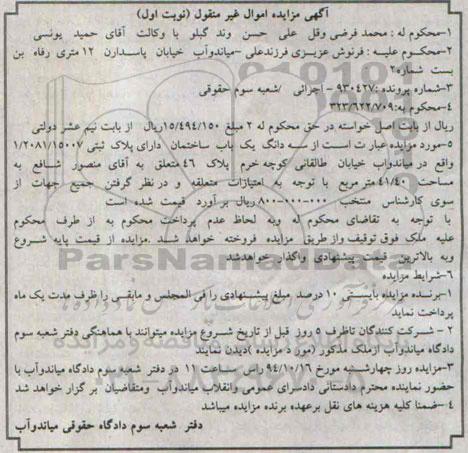 آگهی مزایده اموال غیر منقول (نوبت اول)
۱-محکوم له : محمد فرضی وقل علی حسن وند گیلو با وکالت آقای حمید یونسی
۲-محکوم علیه : فرنوش عزیزی فرزندعلی -میاندوآب خیابان پاسداران ۱۲ متری رفاه بن
بست شماره۲
۳-شماره پرونده :۹۳۰۴۲۷ - اجرائی /شعبه سوم حقوقی
۴-محکوم به:۳۲۳/۶۲۲/۷۰۹
ریال از بابت اصل خواسته در حق محکوم له ۲ مبلغ ۱۵/۴۹۴/۱۵۰ریال از بابت نیم عشر دولتی
۵-مورد مزایده عبارت است از سه دانگ یک باب ساختمان دارای پلاک ثبتی ۱/۲۰۸۱/۱۵۰۰۷
واقع در میاندواب خیابان طالقانی کوچه خرم پلاک ۴۶ متعلق به آقای منصور شافع به
مساحت ۴۱/۴۰ متر مربع با توجه به امتیازات متعلقه و در نظر گرفتن جمیع جهات از
سوی کارشناس منتخب ۸۰۰-۰۰۰-۰۰۰ ریال بر آورد قیمت شده است
با توجه به تقاضای محکوم له وبه لحاظ عدم پرداخت محکوم به از طرف محکوم
علیه ملک فوق توقیف واز طریق مزایده فروخته خواهد شد .مزایده از قیمت پایه شروع
وبه بالاترین قیمت پیشنهادی واگذار خواهدشد
۶-شرایط مزایده
۱-برنده مزایده بایستی ۱۰ درصد مبلغ پیشنهادی را فی المجلس و مابقی را ظرف مدت یک ماه
پرداخت نماید
۲ - شرکت کنندگان تاظرف ۵ روز قبل از تاریخ شروع مزایده میتوانند با هماهنگی دفتر شعبه سوم
دادگاه میاندوآب ازملک مذکور (مور د مزایده )دیدن نمایند
۳-مزایده روز چهارشنبه مورخ ۹۴/۱۰/۱۶ راس ساعت ۱۱ در دفتر شعبه سوم دادگاه میاندوآب با
حضور نماینده محترم دادستانی دادسرای عمومی وانقلاب میاندوآب ومتقاضیان بر گزار خواهد شد
۴-ضمنا کلیه هزینه های نقل برعهده برنده مزایده میباشد
دفتر شعبه سوم دادگاه حقوقی میاندوآب
ParsNamadData